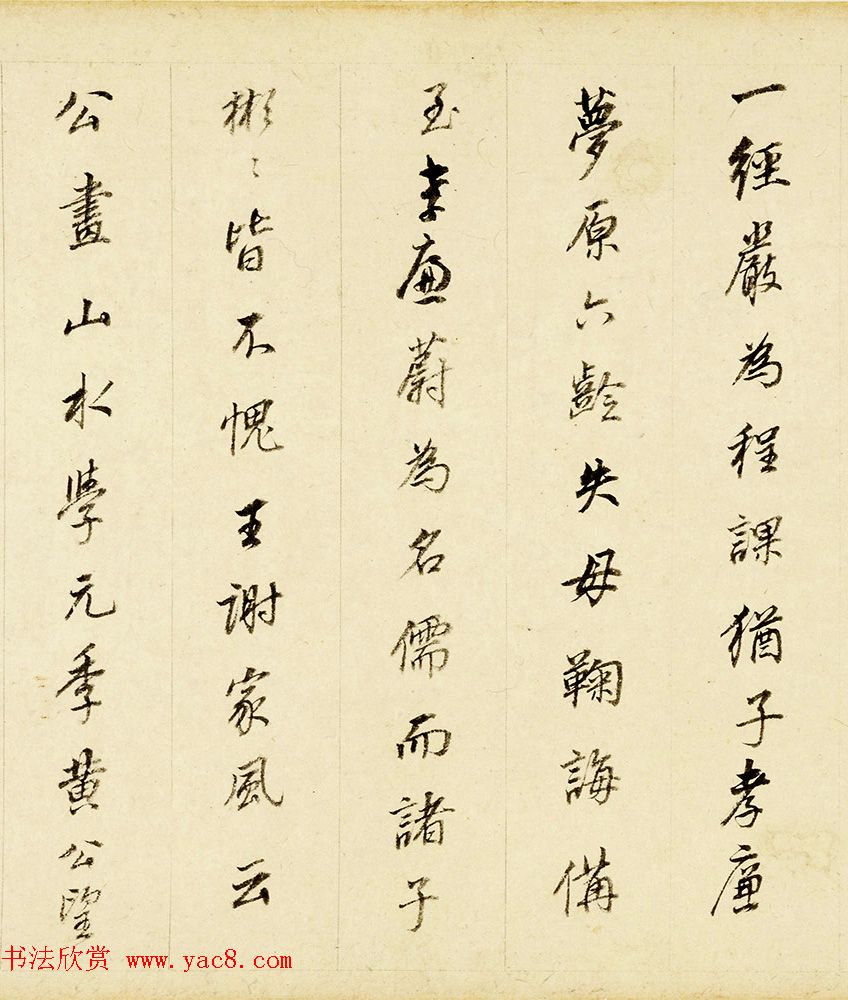 一經嚴為程課猶子孝廉
夢原六齡失母鞠誨備
至孝廉蔚為名儒而諸子
彬〻皆不愧王謝家風云
公畫山水學元季黃公望
书法欣赏 www.yac8.com